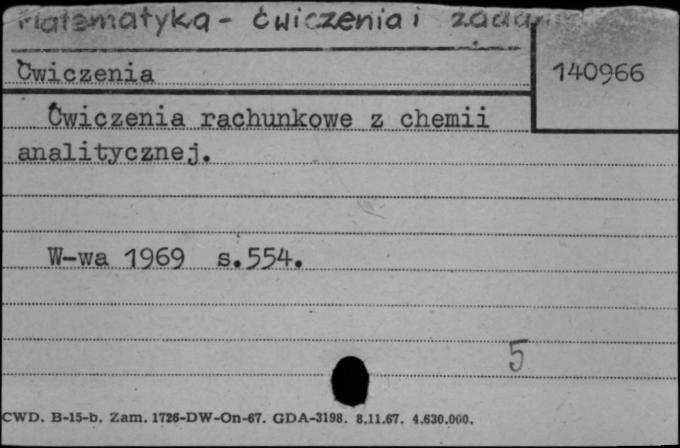 Matematyka - ćwiczenia i zadania
Ćwiczenia
140966
Ćwiczenia rachunkowe z chemii
analitycznej.
W-wa 1969 s.554.
5
CWD. B-15-b. Zam. 1726-DW-On-67. GDA-3198. 8.11.67. 4.630.000.